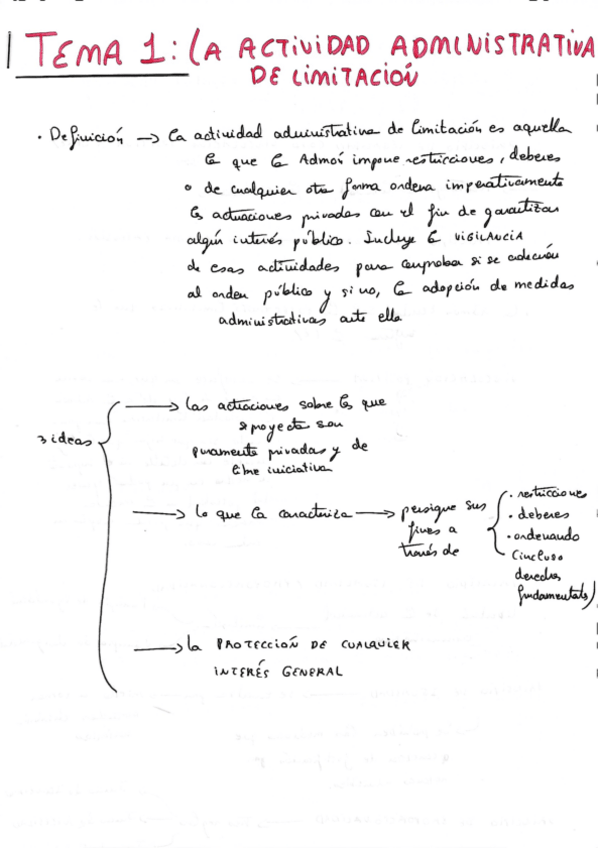 TEMA 1: LA ACTIVIDAD ADMINISTRATIVA
DE LIMITACIÓN
• Definición → La actividad administrativa de limitación es aquella
la que la Admón impone restricciones, deberes
o de cualquier otra forma ordena imperativamente
las actuaciones privadas con el fin de garantizar
algún interés público. Incluye la VIGILANCIA
de esas actividades para comprobar si se adecúan
al orden público y si no, la adopción de medidas
administrativas ante ella
3 ideas
→ las actuaciones sobre las que
se proyecta son
puramente privadas y de
libre iniciativa
→ lo que la caracteriza → persigue sus
fines a
través de
• restricciones
• deberes
• ordenando
(incluso
derechos
fundamentales)
→ la PROTECCIÓN DE CUALQUIER
INTERÉS GENERAL